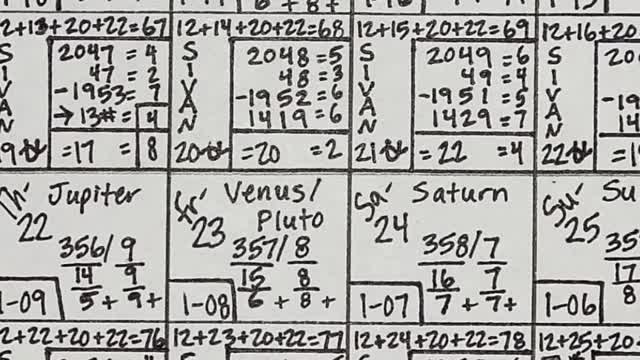 12+13+20+22=67
S I V A N
2047 = 4
47 = 2
-1953= 7
→ 13#= 4
19
=17 = 8
12+14+20+22=68
S I V A N
2048 =5
48 =3
-1952 =6
1419 =6
20
=20 =2
12+15+20+22=69
S I V A N
2049 =6
49 =4
-1951 =5
1429 =7
21
=22 =4
12+16+20
S I V A N
20
-19
14
22
Jupiter
22
356/9
14 9
5+ 9+
1-09
Fr'
Venus/
Pluto
23
357/8
15 8
6 + 8+
1-08
Sa'
Saturn
24
358/7
16 7
7 +7+
1-07
Su'
Su
25
35
17
8
1-06
12+22+20+22=76
12+23+20+22=77
12+24+20+22=78
12+25+20